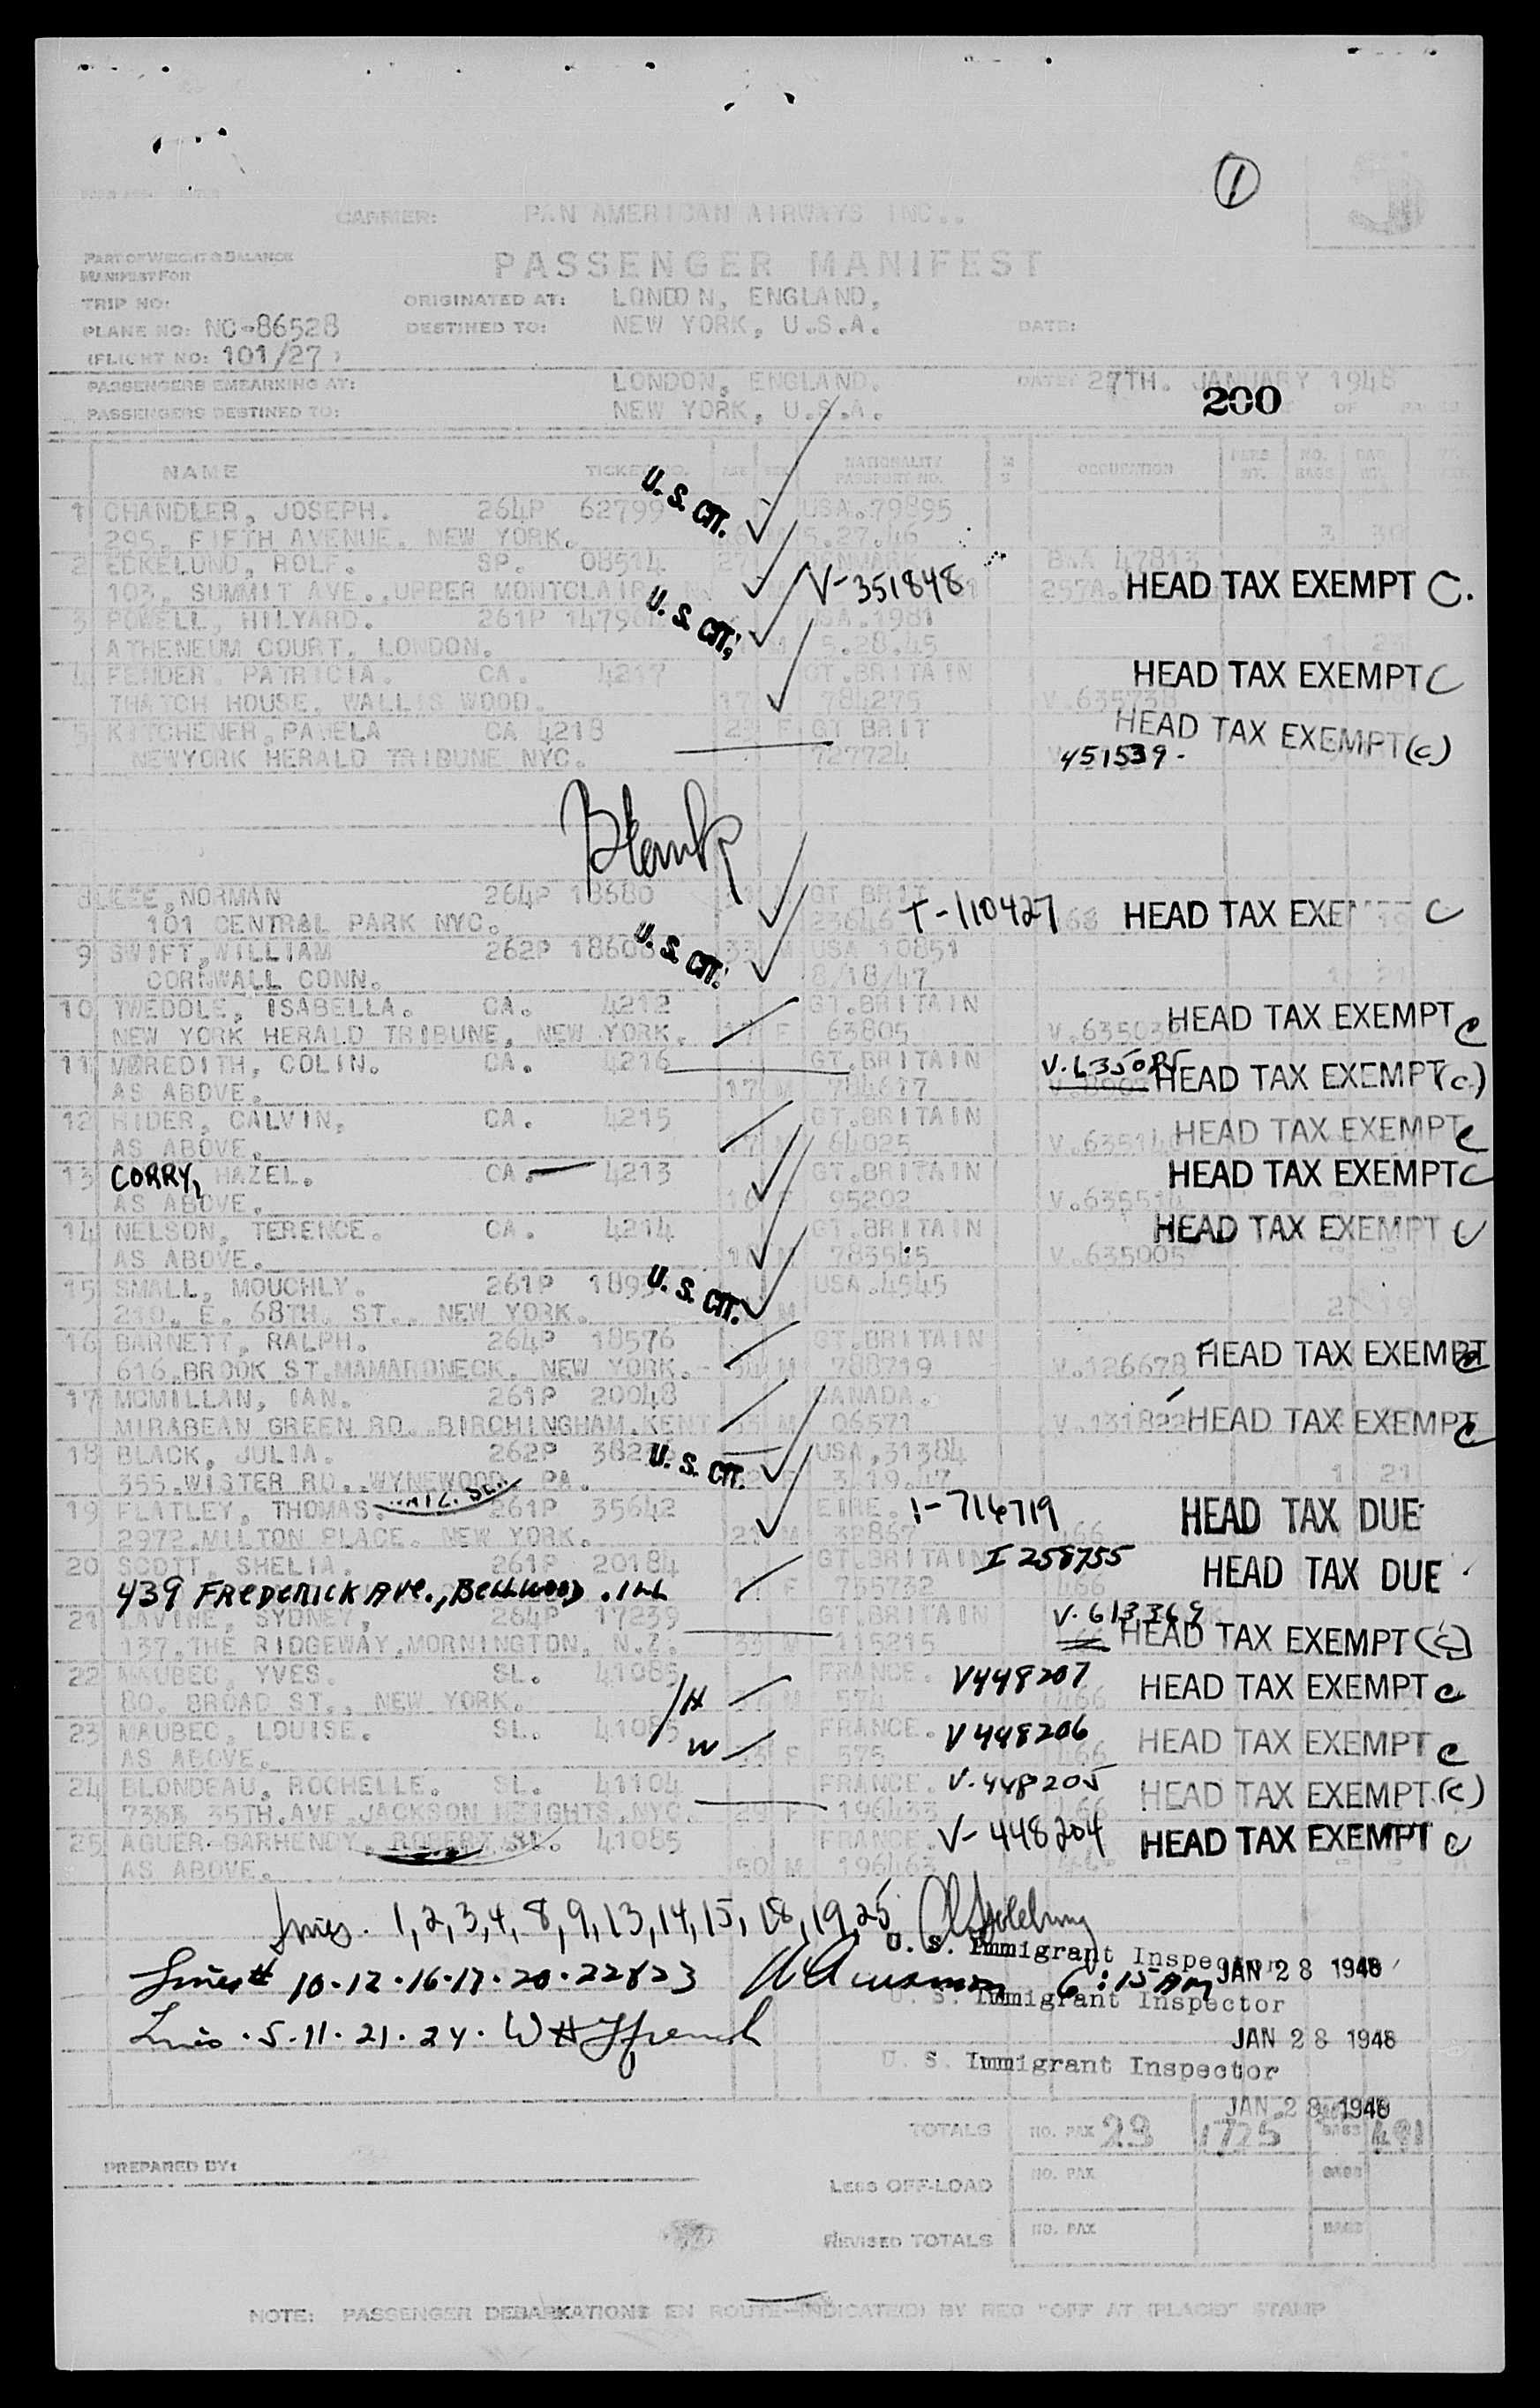 1
CARRIER: PAN AMERICAN AIRWAYS INC..
PART OF WEIGHT & BALANCE
MANIFEST FOR
PASSENGER MANIFEST
TRIP NO:
ORIGINATED AT: LONDON, ENGLAND,
PLANE NO: NC-86528
DESTINED TO: NEW YORK, U.S.A.
DATE:
(FLIGHT NO: 101/27 )
PASSENGERS EMBARKING AT: LONDON, ENGLAND.
DATE: 27TH. JANUARY 1948
PASSENGERS DESTINED TO: NEW YORK, U.S.A.
200 OF
NAME TICKET NO. AGE SEX NATIONALITY PASSPORT NO. OCCUPATION NO. BAGS
1 CHANDLER, JOSEPH. 264P 62799 U.S. CIT. USA.79895
295, FIFTH AVENUE, NEW YORK. 5.27.46 3 30
2 EDKELUND, ROLF. SP. 08514 27 DENMARK
103, SUMMIT AVE., UPPER MONTCLAIR V-351848 HEAD TAX EXEMPT C.
3 POWELL, HILYARD. 261P U.S. CIT. USA.1981
ATHENEUM COURT, LONDON. M 5.28.45
4 FENDER, PATRICIA. CA. 4217 GT.BRITAIN HEAD TAX EXEMPT C
THATCH HOUSE, WALLIS WOOD. 17 784275 V.635738
5 KITCHENER, PAMELA CA 4218 23 F GT BRIT HEAD TAX EXEMPT (C)
NEWYORK HERALD TRIBUNE NYC. 727724 451539-
Blank
8 LEE, NORMAN 264P 18680 GT BRIT
101 CENTRAL PARK NYC. 23646 T-110427 HEAD TAX EXE C
9 SWIFT, WILLIAM 262P U.S. CIT. 33 M USA 10851
CORNWALL CONN. 8/18/47
10 TWEDDLE, ISABELLA. CA. 4212 GT.BRITAIN
NEW YORK HERALD TRIBUNE, NEW YORK. 17 F 63805 HEAD TAX EXEMPT C
11 MEREDITH, COLIN. CA. 4216 GT.BRITAIN
AS ABOVE. 17 M 784617 HEAD TAX EXEMPT (C)
12 RIDER, CALVIN. CA. 4215 GT.BRITAIN
AS ABOVE. 17 M 64025 HEAD TAX EXEMPT C
13 CORRY, HAZEL. CA. 4213 GT.BRITAIN HEAD TAX EXEMPT C
AS ABOVE. 16 F 95202
14 NELSON, TERENCE. CA. 4214 GT.BRITAIN HEAD TAX EXEMPT C
AS ABOVE. M V.635005
15 SMALL, MOUCHLY. 261P U.S. CIT. USA.4545
210, E, 68TH. ST., NEW YORK. M
16 BARNETT, RALPH. 264P 18576 GT.BRITAIN
616.BROOK ST.MAMARONECK, NEW YORK. M 788719 V.126678 HEAD TAX EXEMPT C
17 MCMILLAN, IAN. 261P 20048 CANADA.
MIRABEAN GREEN RD..BIRCHINGHAM.KENT M 06571 V.131822 HEAD TAX EXEMPT C
18 BLACK, JULIA. 262P U.S. CIT. USA.31384
355.WISTER RD..WYNEWOOD. PA. 3.19.47 1 21
19 FLATLEY, THOMAS. 261P 35642 EIRE. 716719 HEAD TAX DUE
2972.MILTON PLACE. NEW YORK. M 32867
20 SCOTT, SHELIA. 261P 20184 GT.BRITAIN I 258755 HEAD TAX DUE
439 FREDERICK AVE., BELLWOOD. ILL F 755732
21 LAVINE, SYDNEY, 264P 17239 GT.BRITAIN V.613369
137.THE RIDGEWAY.MORNINGTON, N.Z. 33 M 115215 HEAD TAX EXEMPT (C)
22 MAUBEC, YVES. SL. 41085 FRANCE. V448207 HEAD TAX EXEMPT C
80. BROAD ST., NEW YORK. H M 574
23 MAUBEC, LOUISE. SL. 41085 FRANCE. V448206 HEAD TAX EXEMPT C
AS ABOVE. W F 575
24 BLONDEAU, ROCHELLE. SL. 41104 FRANCE. V.448205 HEAD TAX EXEMPT (C)
35TH.AVE.JACKSON HEIGHTS.NYC. 29 F 196433
25 AGUER-BARHENDY, ROBERT SL. 41085 FRANCE. V-448204 HEAD TAX EXEMPT C
AS ABOVE. 50 M 196463
Lines. 1,2,3,4,8,9,13,14,15,18,19,25
U. S. Immigrant Inspector JAN 28 1948
Lines # 10-12-16-17-20-22&23 6:15 AM
U. S. Immigrant Inspector JAN 28 1948
Lines.5-11-21-24. W H French
U. S. Immigrant Inspector JAN 28 1948
TOTALS NO. PAX 23 1725 BAGS 491
PREPARED BY:
LESS OFF-LOAD NO. PAX BAGS
REVISED TOTALS NO. PAX BAGS
NOTE: PASSENGER DEBARKATIONS EN ROUTE—INDICATE(D) BY RED "OFF AT (PLACE)" STAMP